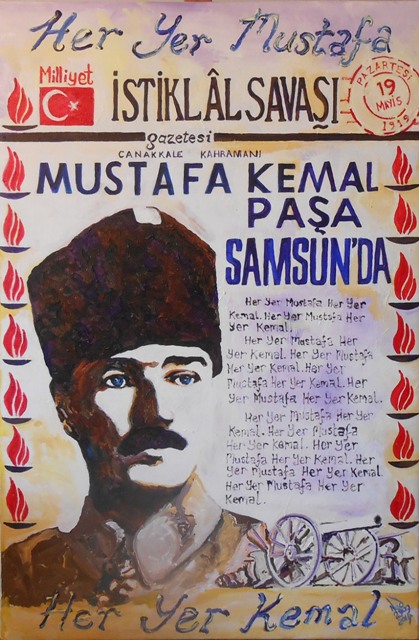 Her Yer Mustafa
Milliyet
İSTİKLÂL SAVAŞI
PAZARTESİ
19
MAYIS
1919
gazetesi
ÇANAKKALE KAHRAMANI
MUSTAFA KEMAL
PAŞA
SAMSUN'DA
Her Yer Mustafa Her Yer
Kemal. Her Yer Mustafa Her
Yer Kemal.
Her Yer Mustafa Her
Yer Kemal. Her Yer Mustafa
Her Yer Kemal. Her Yer
Mustafa Her Yer Kemal. Her
Yer Mustafa Her Yer Kemal.
Her Yer Mustafa Her Yer
Kemal. Her Yer Mustafa
Her Yer Kemal. Her Yer
Mustafa Her Yer Kemal. Her
Yer Mustafa Her Yer Kemal.
Her Yer Mustafa Her Yer
Kemal.
Her Yer Kemal